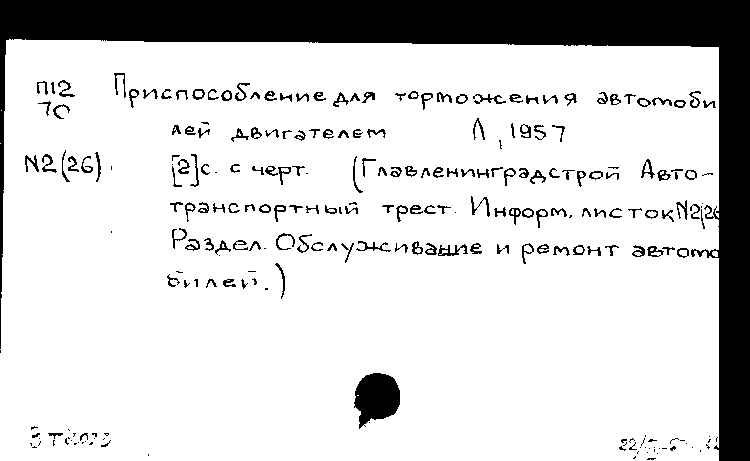 П12 Приспособление для торможения автомоби
7С лей двигателем Л, 1957
N2(26). [2]с. с черт. (Главленинградстрой Авто-
транспортный трест. Информ. листок N2(26
Раздел. Обслуживание и ремонт автомо
билей.)